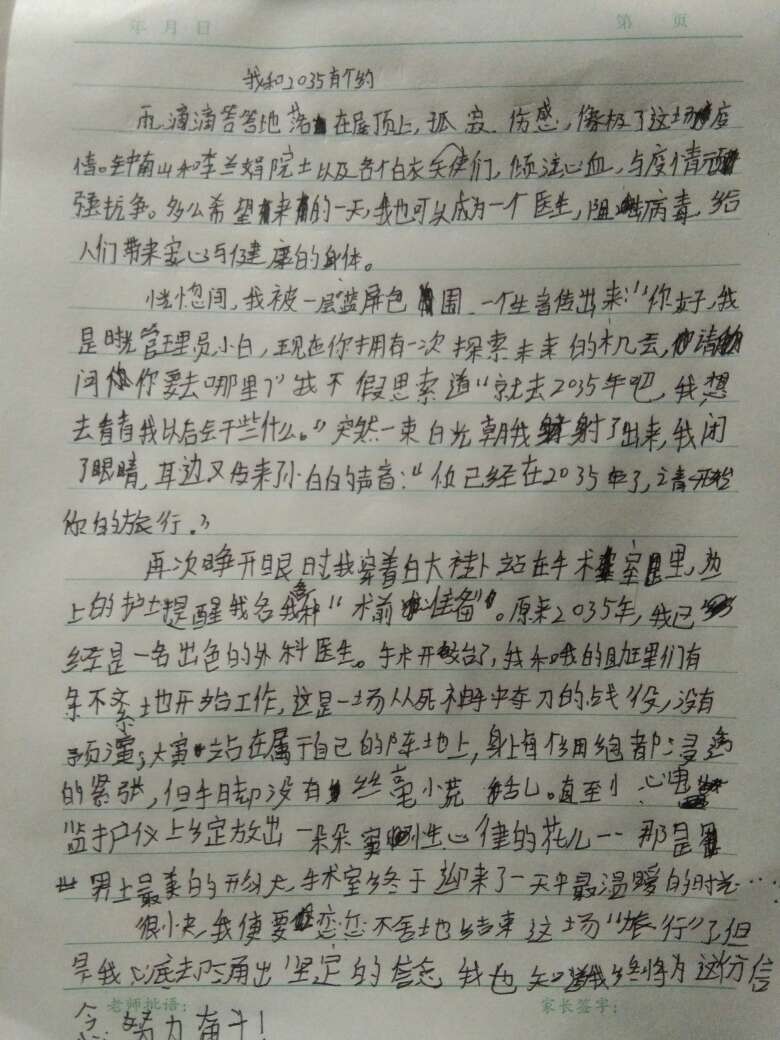 年 月 日 第 页
我和2035有个约
雨滴滴答答地落在屋顶上,孤寂、伤感,像极了这场疫
情。钟南山和李兰娟院士以及各个白衣天使们,倾注心血,与疫情顽
强抗争。多么希望未来的一天,我也可以成为一个医生,阻病毒,给
人们带来安心与健康的身体。
恍惚间,我被一层蓝屏包围,一个生音传出来:“你好,我
是时光管理员小白,现在你拥有一次探索未来的机会,请
问你要去哪里?”我不假思索道“就去2035年吧,我想
去看看我以后会干些什么。”突然一束白光朝我射了出来,我闭
了眼睛,耳边又传来小白的声音:“你已经在2035年了,请开始
你的旅行。”
再次睁开眼时我穿着白大褂站在手术室里,边
上的护士提醒我各种“术前准备”。原来2035年,我已
经是一名出色的外科医生。手术开始了,我和我的助理们有
条不紊地开始工作,这是一场从死神手中夺刀的战役,没有
预演;大家站在属于自己的阵地上,身上每个细胞都浸透
的紧张,但手脚却没有丝毫慌乱。直到心电
监护仪上绽放出一朵朵窦性心律的花儿……那是
世界上最美的形状,手术室终于迎来了一天中最温暖的时光……
很快,我便要恋恋不舍地结束这场“旅行”了但
是我心底却涌出坚定的信念,我也知道我终将为这份信
老师批语: 家长签字:
念努力奋斗!